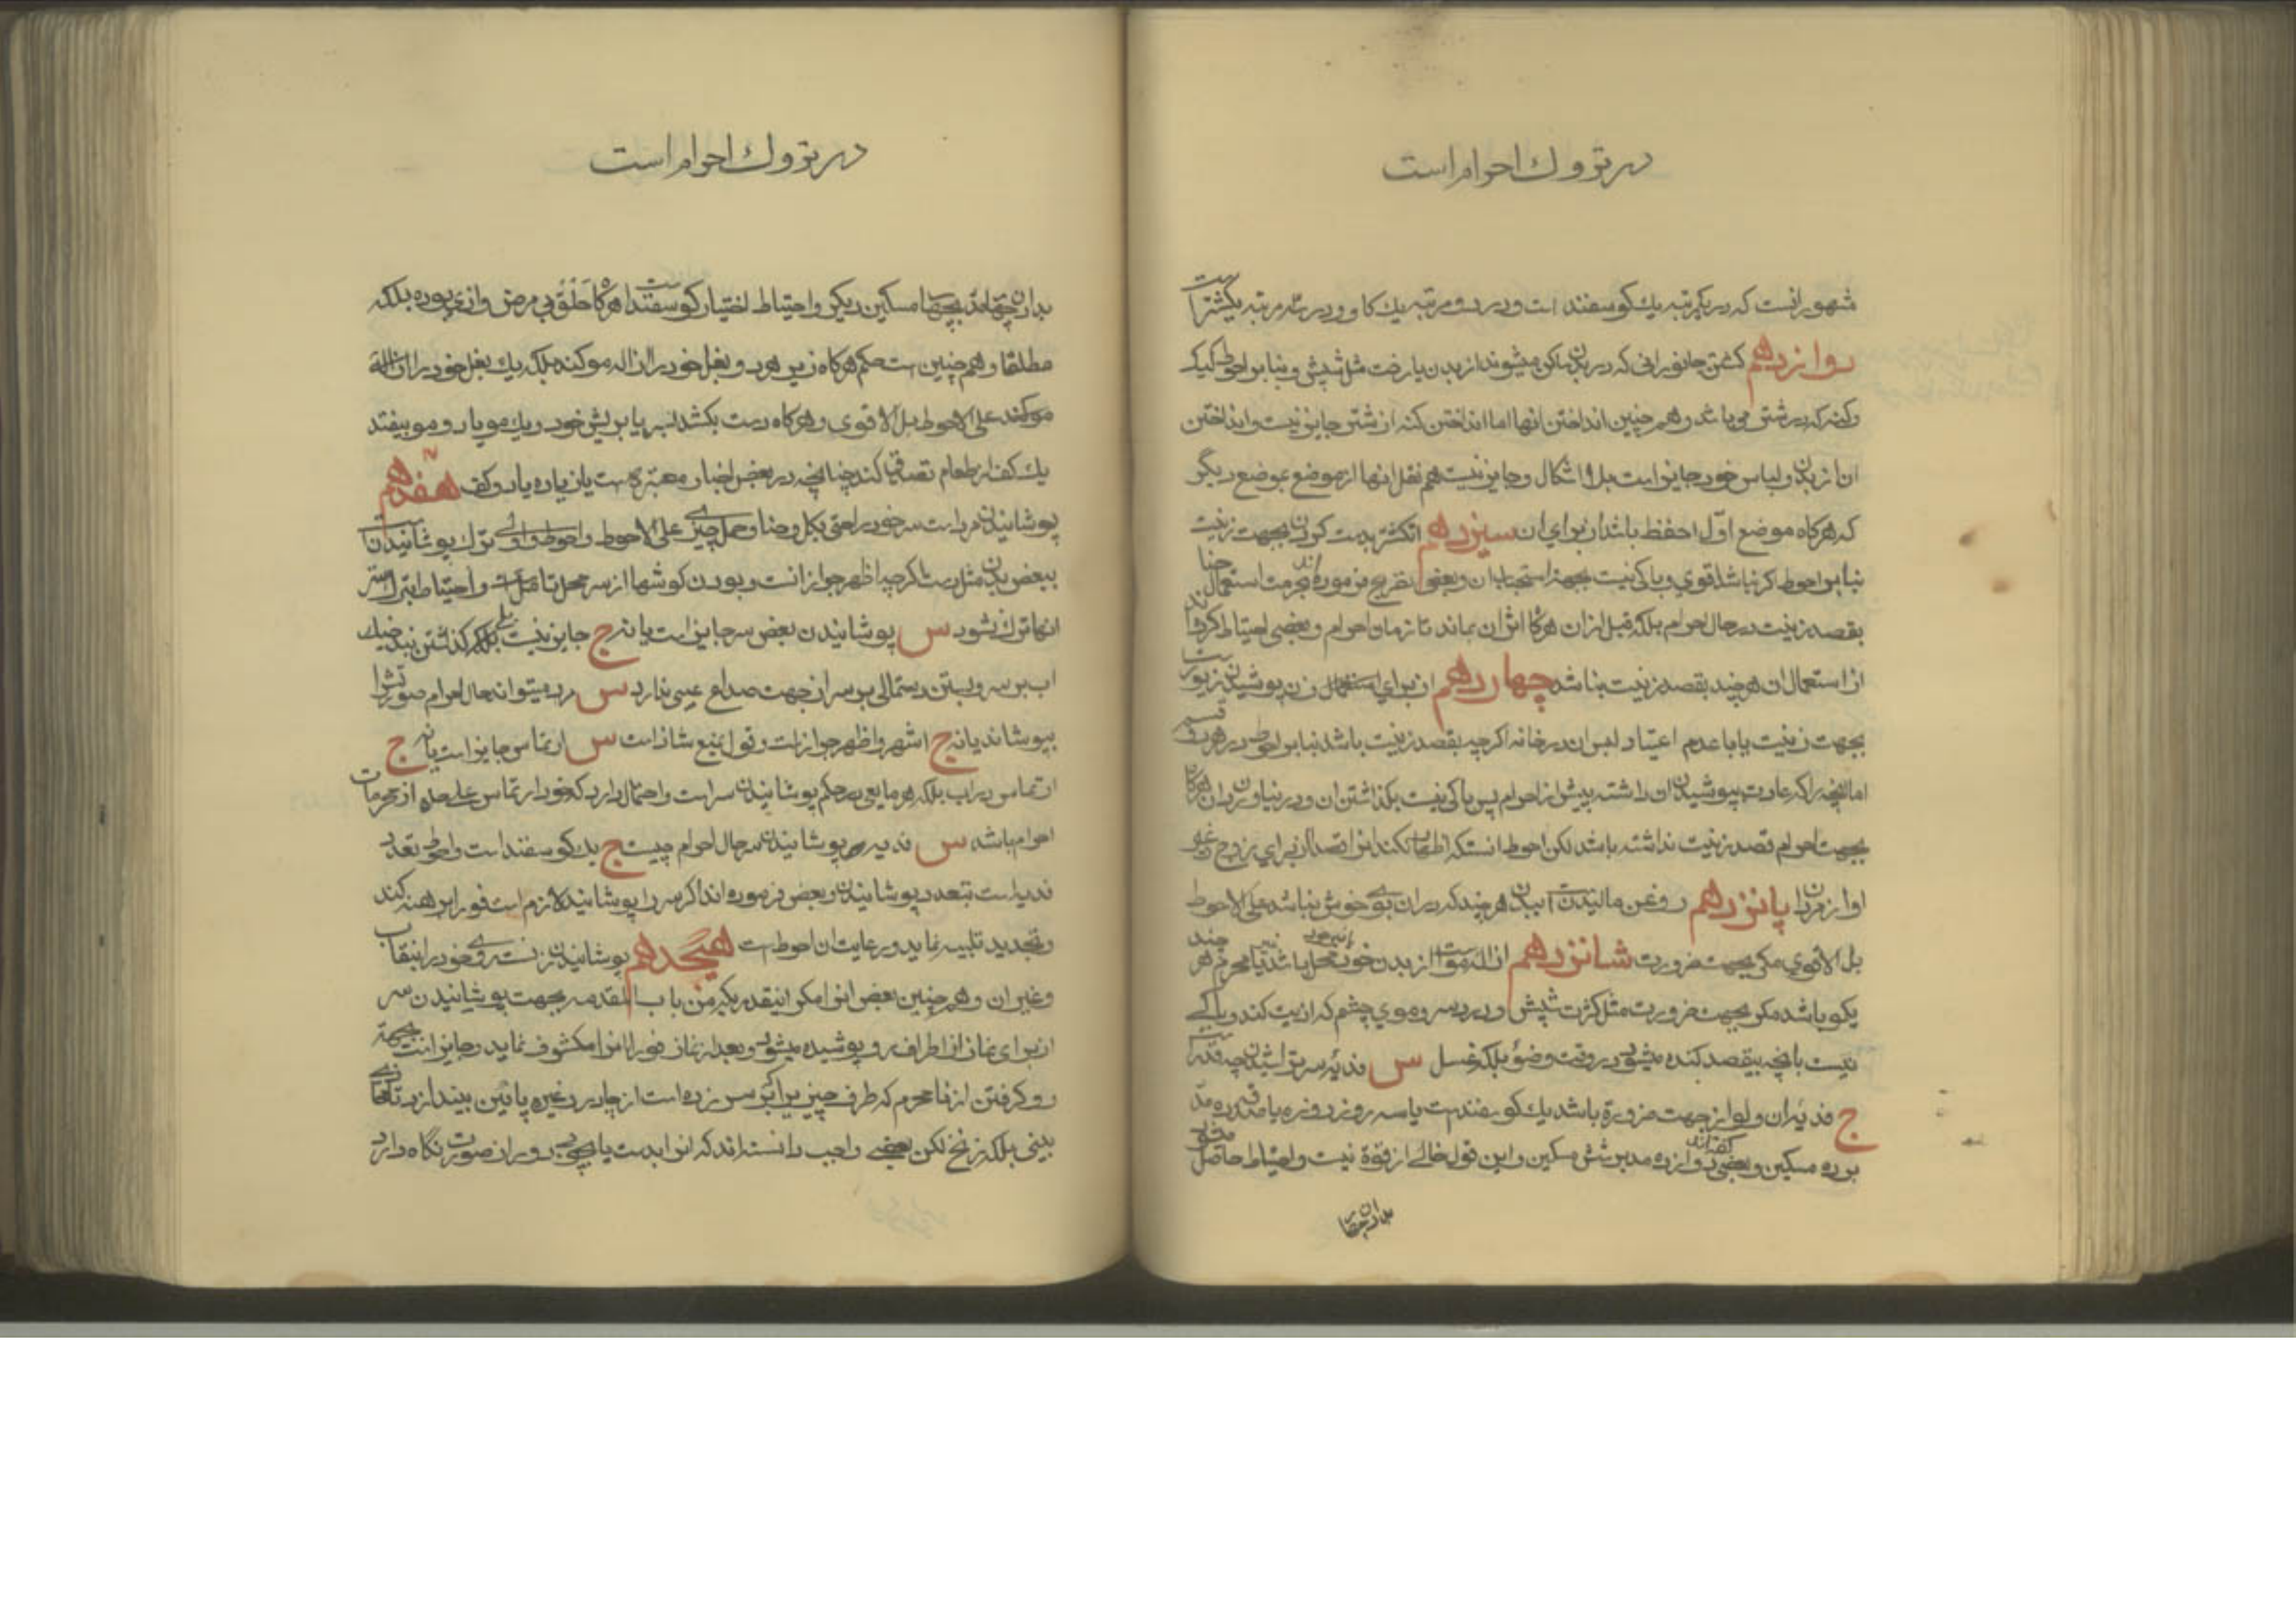 در تروك احرام است
شهور انست که در یکمرتبه يك کوسفند است و در دو مرتبه يك کاو و در سه مرتبه یکشتر است
دوازدهم کشتن جانورانی که در بدن ماکن میشوند از بدن یا رخت مثل شپش و بنابر احوط کیک
وکنه که در شتر می باشد و هم چنین انداختن انها اما انداختن کنه از شتر جایز نیست و انداختن
ان از بدن و لباس خود جایز است بلا اشکال و جایز نیست هم نقل انها از موضع بموضع دیگر
که هرکاه موضع اوّل احفظ باشد از برای ان سیزدهم انکشتر بدست کردن بجهت زینت
بنابر احوط اکر نباشد قوی و باکی نیست بجهة استحباب ان و بعضی تصریح فرموده اند بحرمت استعمال حنا
بقصد زینت در حال احرام بلکه قبل از ان هرکاه اثر ان بماند تا زمان احرام و بعضی احتیاط کرده اند
از استعمال ان هر چند بقصد زینت نباشد چهاردهم از برای زن پوشیدن زیور است
بجهت زینت یا با عدم اعتیاد لبس ان در خانه اکرچه بقصد زینت باشد بنابر احوط در هر دو قسم
اما انچه را که عادت بپوشیدن ان داشته پیش از احرام پس باکی نیست بکذاشتن ان و در نیاوردن ان هرکاه
بجهت احرام قصد زینت نداشته باشد لکن احوط انستکه اظهار نکند انرا قصدا از برای زوج و غیر
او از مردان پانزدهم روغن مالیدن است ببدن هر چند که در ان بوی خوش نباشد علی الاحوط
بل الاقوی مکر بجهت ضرورت شانزدهم ازاله مو است از بدن خود محل باشد یا محرم هر چند
یکمو باشد مکر بجهت ضرورت مثل کثرت شپش و درد سر و موی چشم که اذیت کند و باکی
نیست بانچه بیقصد کنده میشود در وقت وضوء بلکه غسل س فدیه سر تراشیدن چه قدر است
ج فدیه ان ولو از جهت ضرورة باشد يك کوسفند است یا سه روز روزه یا صدقه ده مدّ
بر ده مسکین و بعضی کفته اند دوازده مد بر شش مسکین و این قول خالی از قوة نیست و احتیاط حاصل
بدادن چهار
در تروك احرام است
بدادن چهار مدّ بچهار مسکین دیکر و احتیاط اختیار کوسفند است هرکاه حَلْق بی مرض و اذی بوده بلکه
مطلقا و هم چنین است حکم هرکاه زیر هر دو بغل خود را ازاله مو کند بلکه يك بغل خود را ازاله
مو کند علی الاحوط بل الاقوی و هرکاه دست بکشد بسر یا بریش خود و يك مو یا دو مو بیفتد
يك کف از طعام تصدق کند چنانچه در بعض اخبار معتبره است یا زیاده یا دو کف هفدهم
پوشانیدن مرد است سر خود را حتی بکل و حنا و حمل چیزی علی الاحوط و احوط و اولی ترك پوشانیدن است
ببعض بدن مثل دست اکرچه اظهر جواز انست و بودن کوشها از سر محل تامل است و احتیاط بترك ستر
انها ترك نشود س پوشانیدن بعض سر جایز است یا نه ج جایز نیست بلی کذاشتن بند خيك
اب بر سر و بستن دستمالی بر سر از جهت صداع عیبی ندارد س مرد میتواند حال احرام صورتش را
بپوشاند یا نه ج اشهر و اظهر جواز است و قول بمنع شاذ است س ارتماس جایز است یا نه ج
ارتماس در اب بلکه هر مایعی در حکم پوشانیدن سر است و احتمال دارد که خود ارتماس علیحده از محرمات
احرام باشد س فدیه پوشانیدن سر حال احرام چیست ج يك کوسفند است و احوط تعدد
فدیه است بتعدد پوشانیدن و بعض فرموده اند اکر سر را پوشانید لازم است فورا برهنه کند
و تجدید تلبیه نماید و رعایت ان احوط است هیجدهم پوشانیدن زنست روی خود را بنقاب
و غیر ان و هم چنین بعض انرا مکر انیقدر یکه من باب المقدمه بجهت پوشانیدن سر
از برای نماز از اطراف رو پوشیده میشود و بعد از نماز فورا انرا مکشوف نماید و جایز است بجهة
رو کرفتن از نا محرم که طرف چیزیرا که بر سر زده است از چادر و غیره پائین بیندازد تا محاذی
بینی بلکه زنخ لکن بعضی واجب دانسته اند که انرا بدست یا بچوبی دور ان صورت نکاه دارد